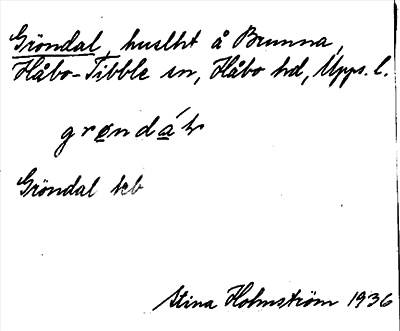 Gröndal, huslht å Brunna,
Håbo-Tibble sn, Håbo hd, Upps. l.
Gröndal kb
Stina Holmström 1936